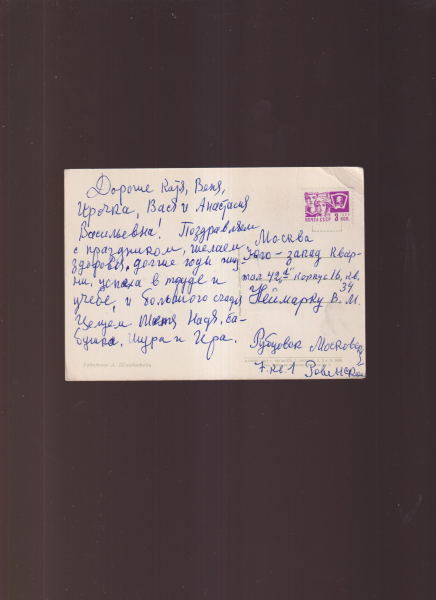 Дорогие Катя, Веня,
Ирочка, Вася и Анастасия
Васильевна! Поздравляем
с праздником, желаем
здоровья, долгие годы жиз-
ни, успеха в труде и
учёбе, и большого счастья
Целуем Тётя Надя, ба-
бушка, Шура и Гера.
ПОЧТА СССР 3 КОП.
Москва
Юго-запад Квар-
тал 42А корпус 16, кв.
34
Неймарку В. М.
Рубцовск Московск
7 кв 1
Художник